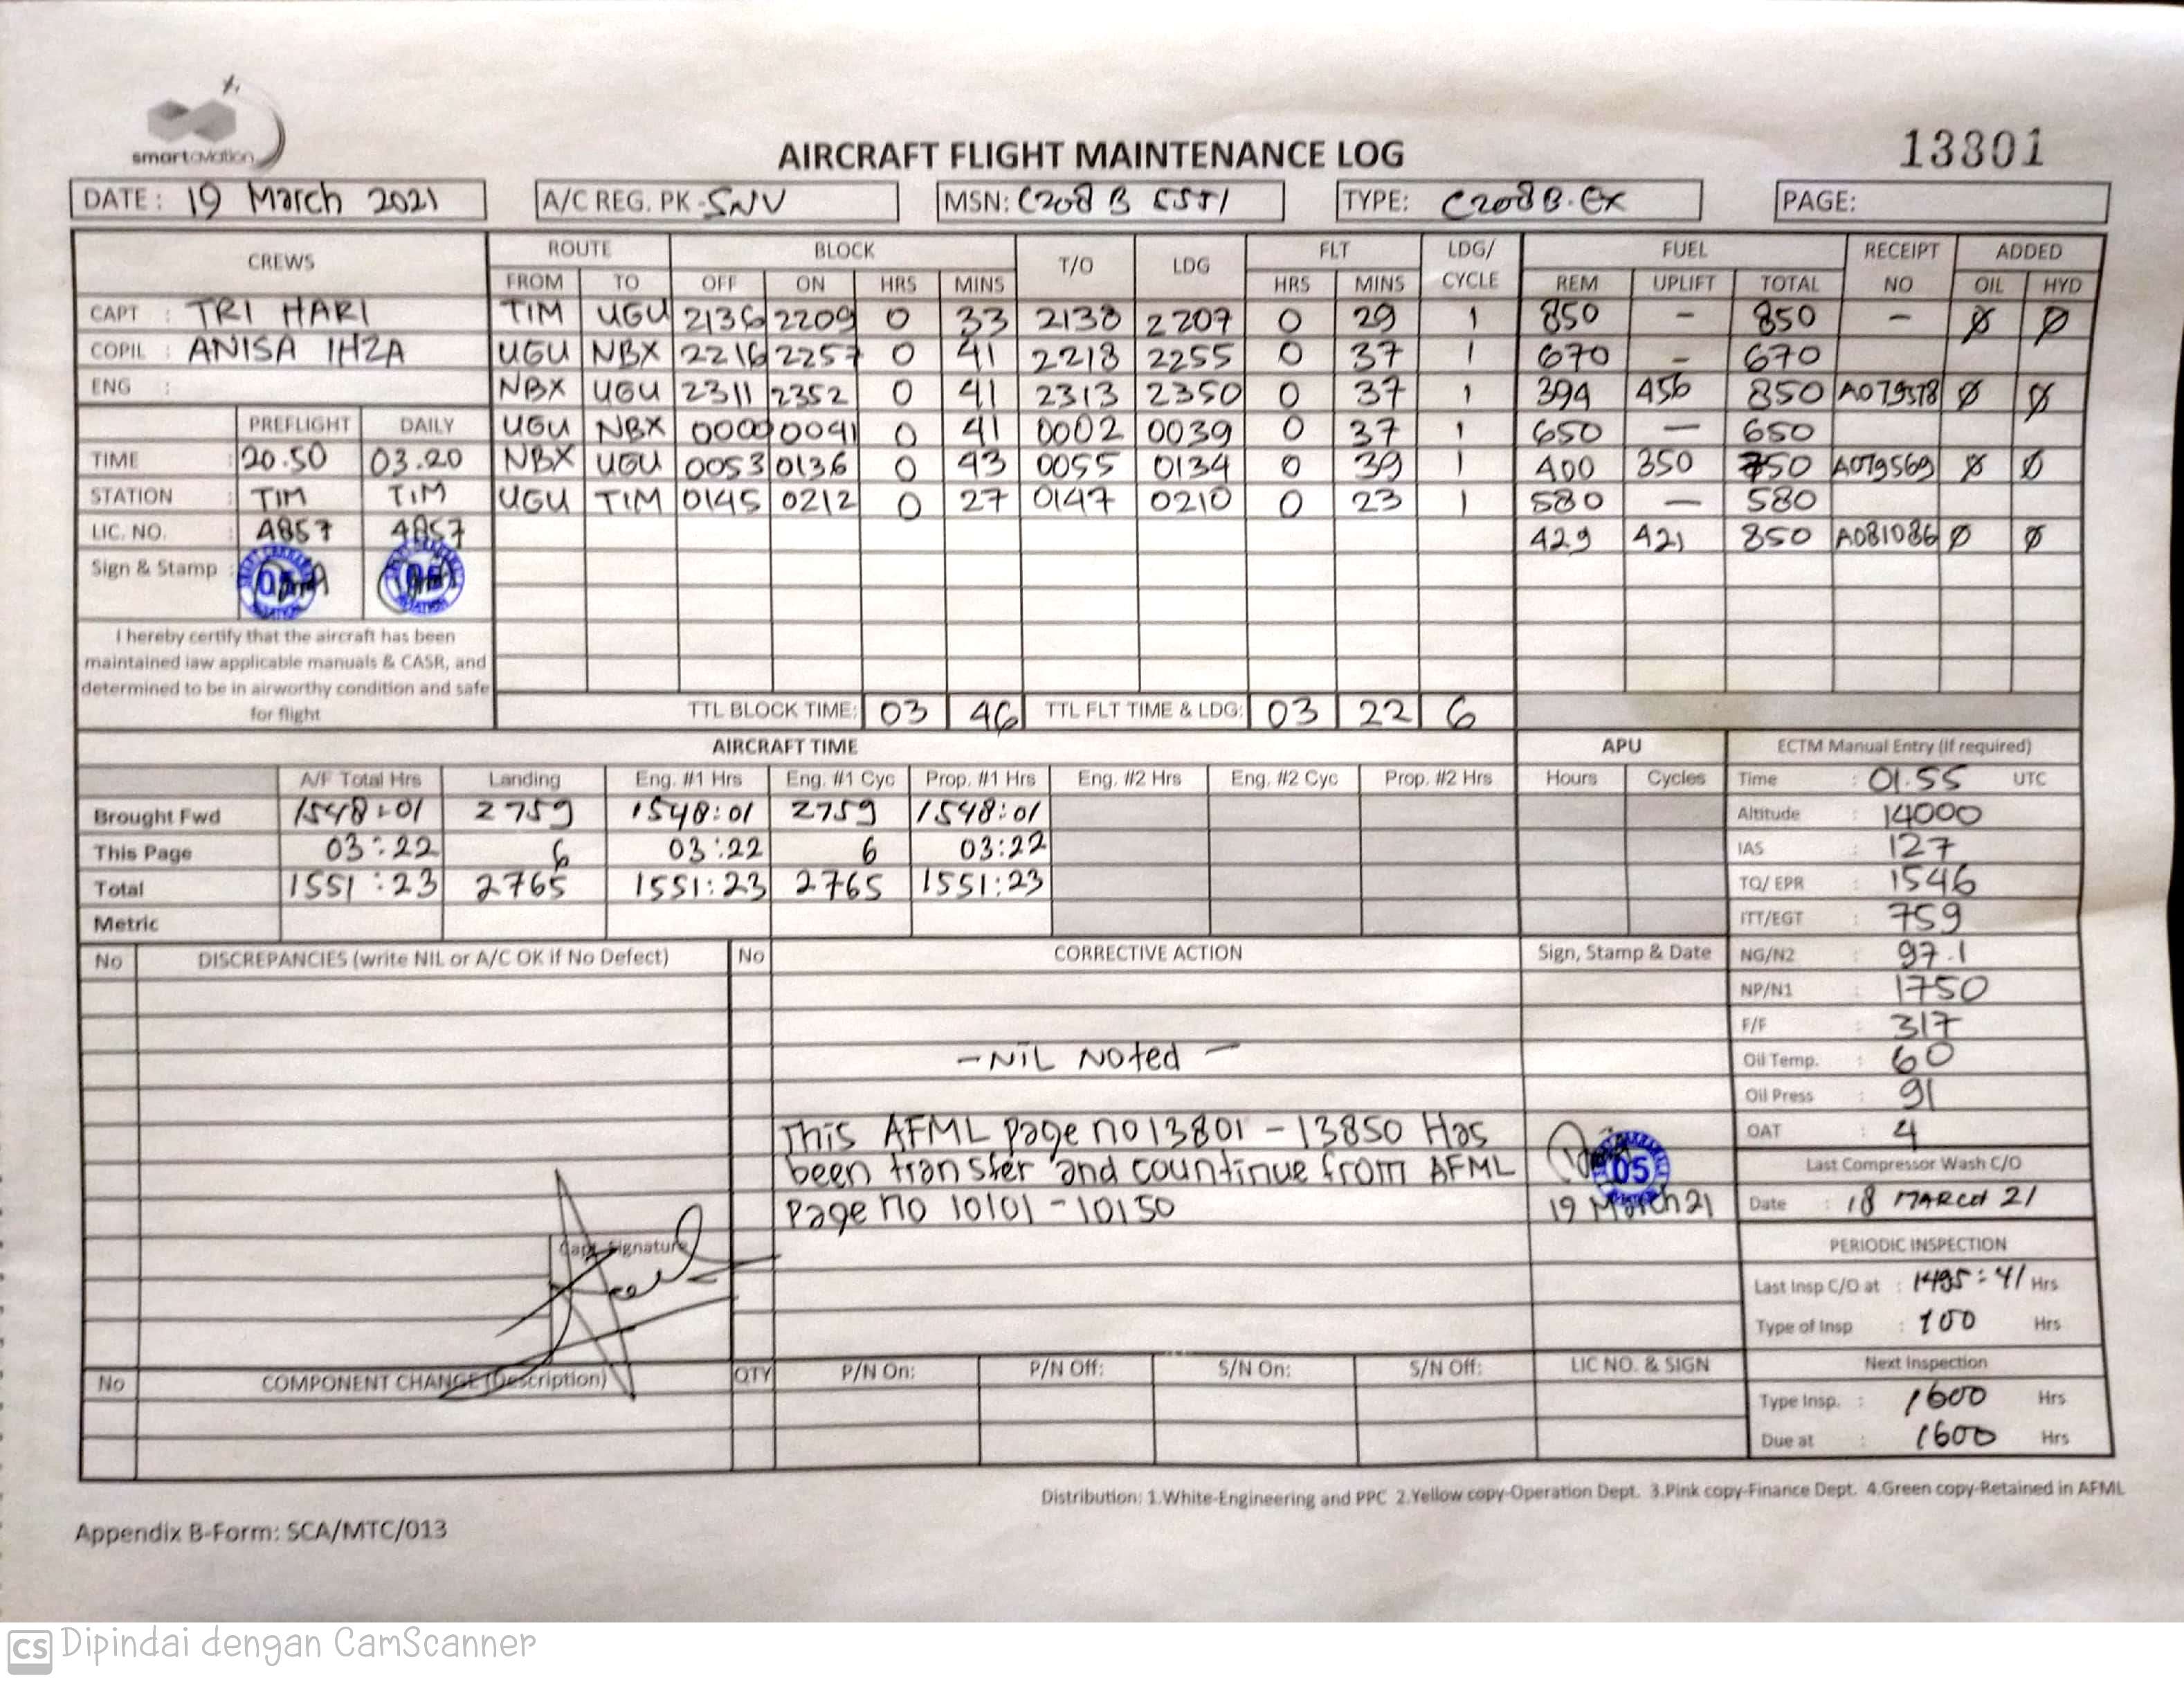 smartaviation
AIRCRAFT FLIGHT MAINTENANCE LOG
13801
DATE: 19 March 2021 A/C REG. PK-SNV MSN: C208 B 5571 TYPE: C208B.EX PAGE:
CREWS ROUTE BLOCK T/O LDG FLT LDG/ CYCLE FUEL RECEIPT NO ADDED
FROM TO OFF ON HRS MINS HRS MINS REM UPLIFT TOTAL OIL HYD
CAPT : TRI HARI TIM UGU 2136 2209 0 33 2138 2207 0 29 1 850 - 850 - Ø Ø
COPIL : ANISA IHZA UGU NBX 2216 2257 0 41 2218 2255 0 37 1 670 - 670
ENG : NBX UGU 2311 2352 0 41 2313 2350 0 37 1 394 456 850 A079578 Ø Ø
PREFLIGHT DAILY UGU NBX 0000 0041 0 41 0002 0039 0 37 1 650 - 650
TIME : 20.50 03.20 NBX UGU 0053 0136 0 43 0055 0134 0 39 1 400 350 750 A079569 Ø Ø
STATION : TIM TIM UGU TIM 0145 0212 0 27 0147 0210 0 23 1 580 - 580
LIC. NO. : 4857 4857 429 421 850 A081086 Ø Ø
Sign & Stamp : 05 05
I hereby certify that the aircraft has been
maintained iaw applicable manuals & CASR, and
determined to be in airworthy condition and safe
for flight
TTL BLOCK TIME: 03 46 TTL FLT TIME & LDG: 03 22 6
AIRCRAFT TIME APU ECTM Manual Entry (if required)
A/F Total Hrs Landing Eng. #1 Hrs Eng. #1 Cyc Prop. #1 Hrs Eng. #2 Hrs Eng. #2 Cyc Prop. #2 Hrs Hours Cycles Time : 01.55 UTC
Brought Fwd 1548:01 2759 1548:01 2759 1548:01 Altitude : 14000
This Page 03:22 6 03:22 6 03:22 IAS : 127
Total 1551:23 2765 1551:23 2765 1551:23 TQ/ EPR : 1546
Metric ITT/EGT : 759
No DISCREPANCIES (write NIL or A/C OK if No Defect) No CORRECTIVE ACTION Sign, Stamp & Date NG/N2 : 97.1
NP/N1 : 1750
F/F : 317
- NIL Noted - Oil Temp. : 60
Oil Press : 91
This AFML page no 13801 - 13850 Has OAT : 4
been transfer and countinue from AFML 05 Last Compressor Wash C/O
Page no 10101 - 10150 19 March 21 Date : 18 MARCH 21
Capt. Signature PERIODIC INSPECTION
Last Insp C/O at : 1495:41 Hrs
Type of Insp : 100 Hrs
No COMPONENT CHANGE (Description) QTY P/N On: P/N Off: S/N On: S/N Off: LIC NO. & SIGN Next Inspection
Type Insp. : 1600 Hrs
Due at : 1600 Hrs
Distribution: 1.White-Engineering and PPC 2.Yellow copy-Operation Dept. 3.Pink copy-Finance Dept. 4.Green copy-Retained in AFML
Appendix B-Form: SCA/MTC/013
CS Dipindai dengan CamScanner